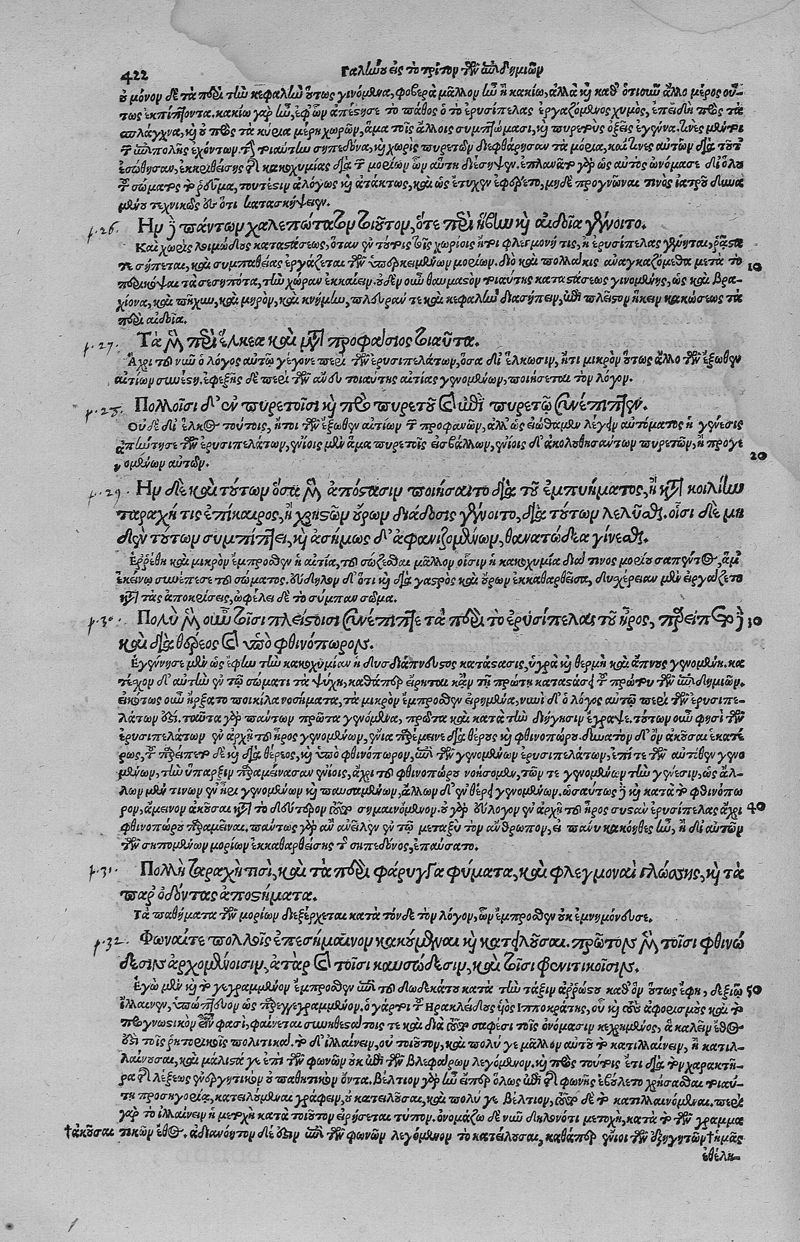 422 Γαληνοῦ εἰς τὸ τρίτον τῶν ἐπιδημιῶν
ὁ μόνον δὲ τὰ περὶ τὴν κεφαλὴν οὕτως γινόμενα, φοβερὰ μᾶλλον ἦν ἢ κακίω, ἀλλὰ καὶ καθ' ὁτιοῦν ἄλλο μέρος οὕ-
τως ἐκπίπτοντα. κακίω γὰρ ἦν, ἐφ' ὧν ἀπέστησε τὸ πάθος ὁ τὸ ἐρυσίπελας ἐργαζόμενος χυμὸς, ἐπειδὴ πρὸς τὰ
σπλάγχνα, καὶ πρὸς τὰ κύρια μέρη χωρῶν, ἅμα τοῖς ἄλλοις συμπτώμασι, καὶ πυρετοὺς ὀξεῖς ἐγέννα. τινὲς μὲν
ἐπιπολῆς ἐχόντων τὴν τοιαύτην σηπεδόνα, καὶ χωρὶς πυρετῶν διεφθάρησαν τὰ μόρια, καί τινες αὐτῶν διὰ τοῦτ'
ἐσώθησαν, ἐκκριθείσης τῆς κακοχυμίας διὰ τῶν μορίων ὧν αὐτὴ διέσηψεν. ἐπλανᾶτο γὰρ ὡς αὐτὸς ὠνόμασε δι' ὅλου
τοῦ σώματος τὸ ῥεῦμα, τουτέστιν ἀλόγως καὶ ἀτάκτως, καὶ ὡς ἔτυχεν ἐφέρετο, μηδὲ προγνῶναί τινος ἰατροῦ δυνα
μένου τεχνικῶς ὅτι κατασκήψειεν.
p. 26. Ἦν δὲ πάντων χαλεπώτατον τοιοῦτον, ὅτε περὶ ἥβην καὶ αἰδοῖα γένοιτο.
Καὶ χωρὶς λοιμώδους καταστάσεως, ὅταν ἐν τούτοις τοῖς χωρίοις ἤτοι φλεγμονή τις, ἢ ἐρυσίπελας γένηται, ῥᾷστα
τε σήπεται, καὶ συμπαθείας ἐργάζεται τῶν ὑπερκειμένων μορίων. διὸ καὶ πολλάκις ἀναγκαζόμεθα μετὰ τὸ 10
περικόψαι τὰ σεσηπότα, τὴν χώραν ἐκκαίειν. οὐδὲν οὖν θαυμαστὸν τοιαύτης καταστάσεως γινομένης, ὡς καὶ βρα-
χίονα, καὶ πῆχυν, καὶ μηρὸν, καὶ κνήμην, πλευράν τε καὶ κεφαλὴν διασήπειν, ἐπὶ πλεῖστον ἥκειν κακώσεως τὰ
περὶ αἰδοῖα.
p. 27. Τὰ μὲν περὶ ἕλκεα καὶ μετὰ προφάσιος τοιαῦτα.
Ἄχρι τοῦ νῦν ὁ λόγος αὐτῷ γέγονε περὶ τῶν ἐρυσιπελάτων, ὅσα δι' ἕλκωσιν, ἤ τι μικρὸν οὕτως ἄλλο τῶν ἔξωθεν
αἰτίων συνέστη. ἐφεξῆς δὲ περὶ τῶν ἄνευ τοιαύτης αἰτίας γενομένων, ποιήσεται τὸν λόγον.
p. 28. Πολλοῖσι δ' ἐν πυρετοῖσι καὶ πρὸ πυρετοῦ καὶ ἐπὶ πυρετῷ ξυνέπιπτεν.
Οὐδὲ δι' ἕλκος τούτοις, ἤτοι τῶν ἔξωθεν αἰτίων τῶν προφανῶν, ἀλλ' ὡς εἰώθαμεν λέγειν αὐτόματος ἡ γένεσις
ἀπήντησε τῶν ἐρυσιπελάτων, ἐνίοις μὲν ἅμα πυρετοῖς εἰσβάλλων, ἐνίοις δ' ἀκολουθησάντων πυρετῶν, ἢ προγε 20
νομένων αὐτῶν.
p. 29. Ἦν δὲ καὶ τούτων ὅσα μὲν ἀπόστασιν ποιήσαιτο διὰ τοῦ ἐμπυήματος, ἢ κατὰ κοιλίην
ταραχή τις ἐπίκαιρος, ἢ χρηστῶν οὔρων διάδοσις γένοιτο, διὰ τούτων λελῦσθαι. οἷσι δὲ μη
δὲν τούτων συμπίπτει, καὶ ἀσήμως δ' ἀφανιζομένων, θανατώδεα γίνεσθαι.
Ἐρρέθη καὶ μικρὸν ἔμπροσθεν ἡ αἰτία, τοῦ σώζεσθαι μᾶλλον οἷσιν ἡ κακοχυμία διά τινος μορίου σαπέντος, ἅμ'
ἐκείνῳ συνέπεσε τοῦ σώματος. εὔδηλον δ' ὅτι καὶ διὰ γαστρὸς καὶ οὔρων ἐκκαθαρθεῖσα, δυσχέρειαν μὲν ἐργάζεται
κατὰ τὰς ἀποκρίσεις, ὠφελεῖ δὲ τὸ σύμπαν σῶμα.
p. 30. Πολὺ μὲν οὖν τοῖσι πλείστοισι ξυνέπιπτε τὰ περὶ τὸ ἐρυσίπελας τοῦ ἦρος, παρείπετο δὲ 30
καὶ διὰ θέρεος καὶ ὑπὸ φθινόπωρον.
Ἐγέννησε μὲν ὡς ἔφην τὴν κακοχυμίαν ἡ δυσδιάπνευστος κατάστασις, ὑγρὰ καὶ θερμὴ καὶ ἄπνους γενομένη. κα
τέχον δ' αὐτὴν ἐν τῷ σώματι τὰ ψύχη, καθάπερ εἴρηται κἀν τῇ πρώτῃ καταστάσει τοῦ πρώτου τῶν ἐπιδημιῶν.
εἰκότως οὖν ἤρξατο ποικίλα νοσήματα, τὰ μικρὸν ἔμπροσθεν εἰρημένα, νυνὶ δ' ὁ λόγος αὐτῷ περὶ τῶν ἐρυσιπε-
λάτων ἐστί. ταῦτα γὰρ πάντων πρῶτα γενόμενα, πρῶτα καὶ κατὰ τὴν διήγησιν ἔγραψε. τούτων οὖν φησὶ τῶν
ἐρυσιπελάτων ἐν ἀρχῇ τοῦ ἦρος γενομένων, ἔνια παρέμεινε διὰ θέρους καὶ φθινοπώρου. δυνατὸν δ' ἦν ἀκοῦσαι ἑκατέ
ρως, τοῦ παρείπετο δὲ καὶ διὰ θέρεος, καὶ ὑπὸ φθινόπωρον, ἐπὶ τῶν γενομένων ἐρυσιπελάτων, ἐπί τε τῶν αὐτόθεν γενο
μένων, τὴν ὕπαρξιν παραμείνασαν ἐνίοις, ἄχρι τοῦ φθινοπώρου νοήσομεν, τῶν τε γενομένων τὴν γένεσιν, ὡς ἄλ-
λων μέν τινων ἐν ἦρι γενομένων καὶ παυσαμένων, ἄλλων δ' ἐν θέρει γενομένων. ὡσαύτως δὲ καὶ κατὰ τὸ φθινόπω
ρον, ἄμεινον ἀκοῦσαι κατὰ τὸ δεύτερον σημαινόμενον. οὐ γὰρ εὔλογον ἐν ἀρχῇ τοῦ ἦρος συστὰν ἐρυσίπελας ἄχρι 40
φθινοπώρου παραμεῖναι. πάντως γὰρ ἂν ἀνεῖλεν ἐν τῷ μεταξὺ τὸν ἄνθρωπον, εἰ πάνυ κακόηθες ἦν, ἢ δι' αὐτῶν
τῶν σηπομένων μορίων ἐκκαθαρθείσης τῆς σηπεδόνος, ἐπαύσατο.
p. 31. Πολλὴ ταραχή τισι, καὶ τὰ περὶ φάρυγγα φύματα, καὶ φλεγμοναὶ γλώσσης, καὶ τὰ
παρ' ὀδόντας ἀποστήματα.
Τὰ παθήματα τῶν μορίων διεξέρχεται κατὰ τόνδε τὸν λόγον, ὧν ἔμπροσθεν οὐκ ἐμνημόνευσε.
p. 32. Φωναί τε πολλοῖς ἐπεσήμαινον κακούμεναι καὶ κατειλοῦσαι. πρῶτον μὲν τοῖσι φθινώ
δεσιν ἀρχομένοισιν, ἀτὰρ καὶ τοῖσι καυσώδεσιν, καὶ τοῖσι φρενιτικοῖσιν.
Ἐγὼ μὲν καὶ τὸ γεγραμμένον ἔμπροσθεν ἐπὶ τοῦ δωδεκάτου κατὰ τὴν τάξιν ἀρρώστου καθ' ὃν οὕτως ἔφη, δεξιῷ 50
ἴλλαινεν, ὑπώπτευον ὡς παρεγγεγραμμένον. ὁ γάρ τοι τοῦ Ἡρακλείδου υἱὸς Ἱπποκράτης, οὗ καὶ τοὺς ἀφορισμοὺς καὶ τὸ
προγνωστικὸν εἶναί φασι, φαίνεται συνήθεσί τοῖς τε καὶ διὰ τοῦτο σαφέσι τοῖς ὀνόμασιν κεχρημένος, ἃ καλεῖν ἔθος
ἐστὶ τοῖς ῥητορικοῖς πολιτικά. τὸ δ' ἰλλαίνειν, οὐ τοιοῦτον, καὶ πολύ γε μᾶλλον αὐτοῦ τὸ κατιλλαίνειν, ἢ κατιλ-
λαίνουσαι, καὶ μάλιστά γε ἐπὶ τῶν φωνῶν οὐκ ἐπὶ τῶν βλεφάρων λεγόμενον. καὶ πρὸς τούτοις ἔτι διὰ τοῦ χαρακτῆ-
ρα τῆς λέξεως ἐνεργητικὸν οὐ παθητικὸν ὄντα. βέλτιον γὰρ ἦν εἴπερ ὅλως ἐπὶ τῆς φωνῆς ἐβούλετο χρήσασθαι τοιαύ-
τῃ προσηγορίᾳ, κατειλούμεναι γράφειν, οὐ κατειλοῦσαι, καὶ πολύ γε βέλτιον, τοῦτο δὲ τὸ κατιλλαινόμεναι. παρὰ
γὰρ τὸ ἰλλαίνειν ἡ μετοχὴ κατὰ τοιοῦτον εἰρήσεται τύπον. ὀνομάζω δὲ νῦν δηλονότι μετοχὴν, κατὰ τὸ τῶν γραμμα
†ἀκοῦσαι τικῶν ἔθος. ἀδιανόητον δέ ἐστιν ἐπὶ τῶν φωνῶν λεγόμενον τὸ κατειλοῦσαι, καθάπερ ἔνιοι τῶν ἐξηγητῶν† ἡμᾶς
ἐθέλη-